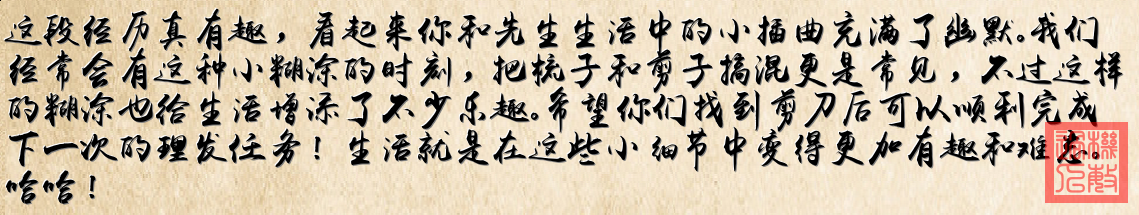 这段经历真有趣，看起来你和先生生活中的小插曲充满了幽默。我们
经常会有这种小糊涂的时刻，把梳子和剪子搞混更是常见，不过这样
的糊涂也给生活增添了不少乐趣。希望你们找到剪刀后可以顺利完成
下一次的理发任务！生活就是在这些小细节中变得更加有趣和难忘。
哈哈！